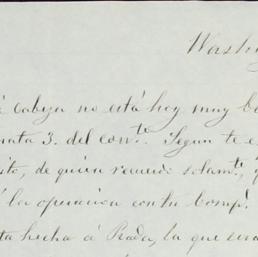 Washi
cabeza no está hoy muy b
3. del corr.te Segun te e
de quien recuerdo solam.te,
la operacion con tu Comp.
hecha á Rada, la que